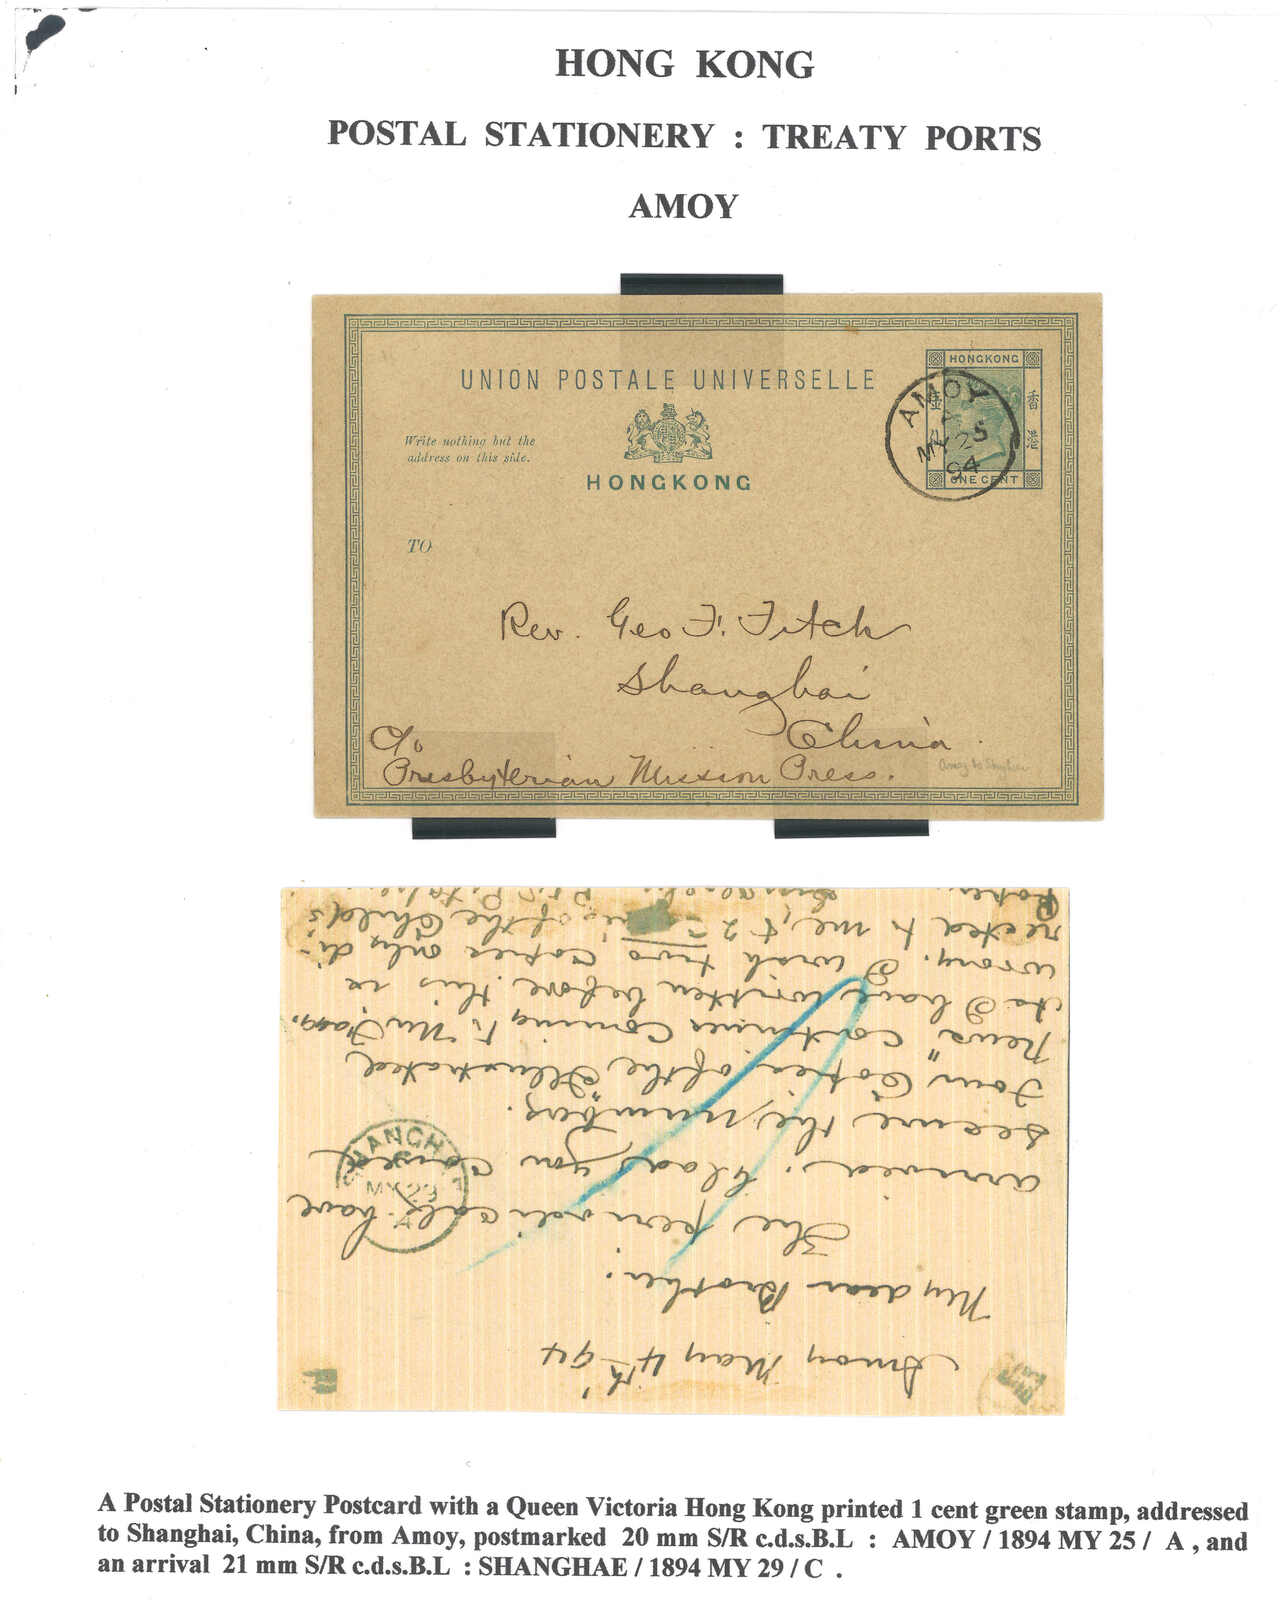 HONG KONG
POSTAL STATIONERY : TREATY PORTS
AMOY
UNION POSTALE UNIVERSELLE
Write nothing but the
address on this side.
HONGKONG
HONGKONG
香港
壹
ONE CENT
AMOY
A
MY 25
94
TO
Rev. Geo F. Fitch
Shanghai
China.
C/o
Presbyterian Mission Press.
Amoy to Shanghai
Amoy May 4th 94
My dear Brother:
The periodicals have
arrived. Glad you could
secure the numbers.
Four Copies of the "Illustrated
News" continue coming to
to I have written before this is
wrong. I wish two copies only di-
rected to me, & 25 of the Child's
Paper.
SHANGHAE
MY 29
A Postal Stationery Postcard with a Queen Victoria Hong Kong printed 1 cent green stamp, addressed
to Shanghai, China, from Amoy, postmarked 20 mm S/R c.d.s.B.L : AMOY / 1894 MY 25 / A , and
an arrival 21 mm S/R c.d.s.B.L : SHANGHAE / 1894 MY 29 / C .